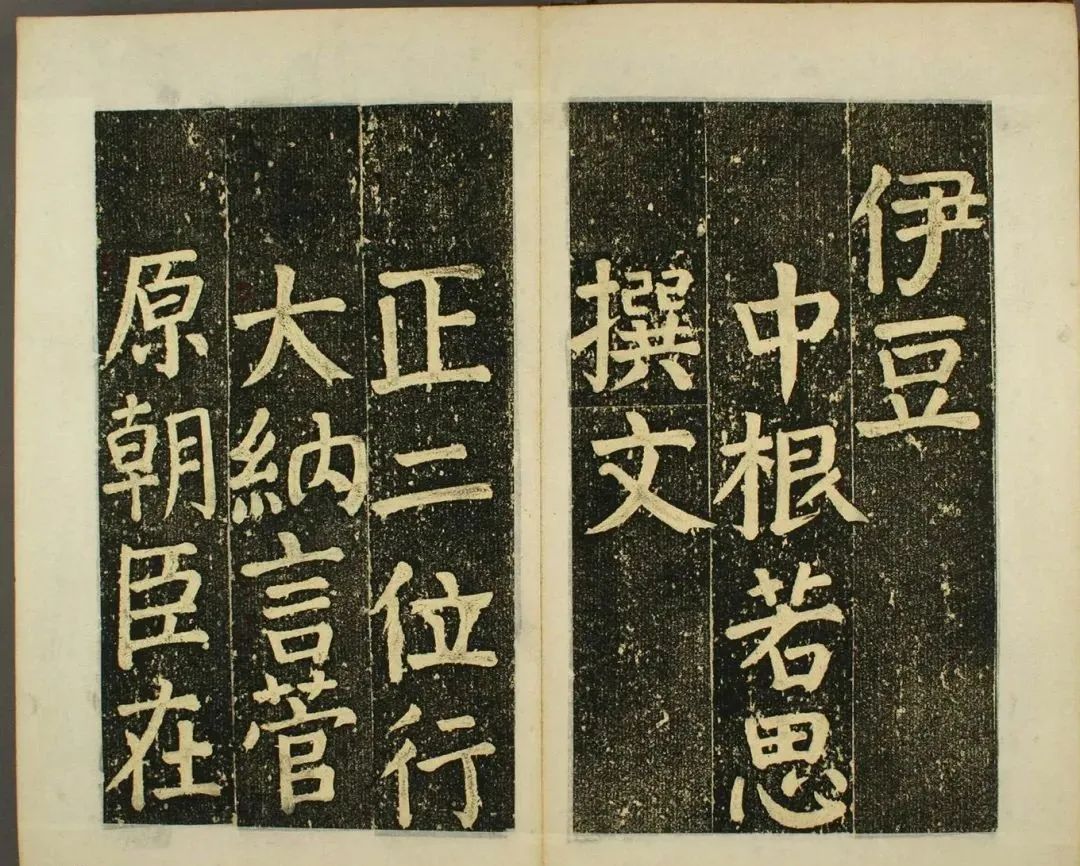 伊豆
中根若思
撰文
正二位行
大納言菅
原朝臣在